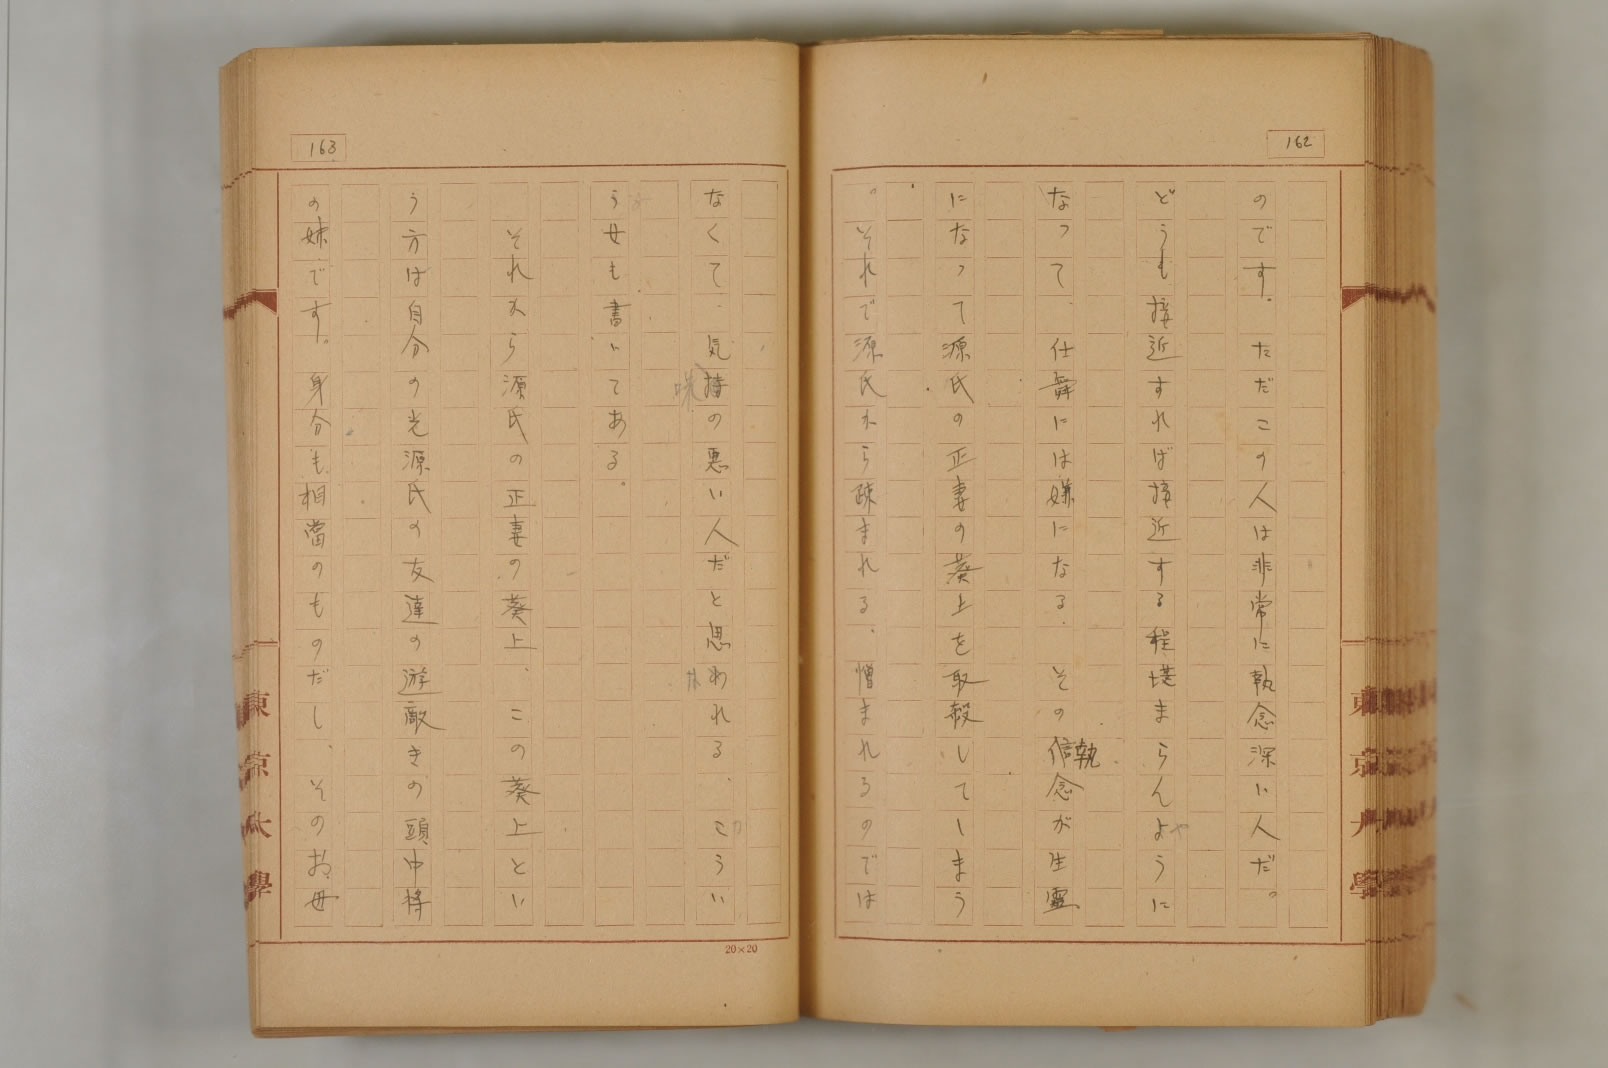 162
のです。ただこの人は非常に執念深い人だ。
どうも接近すれば接近する程堪まらんように
や
なって、仕舞には嫌になる。その信念が生霊
執
になって源氏の正妻の葵上を取殺してしまう
。それで源氏から疎まれる、憎まれるのでは
163
なくて、気持の悪い人だと思われる、こうい
味
う女も書いてある。
それから源氏の正妻の葵上、この葵上とい
う方は自分の光源氏の友達の遊敵きの頭中将
の妹です。身分も相當のものだし、そのお母
20×20
東京大學
東京大學